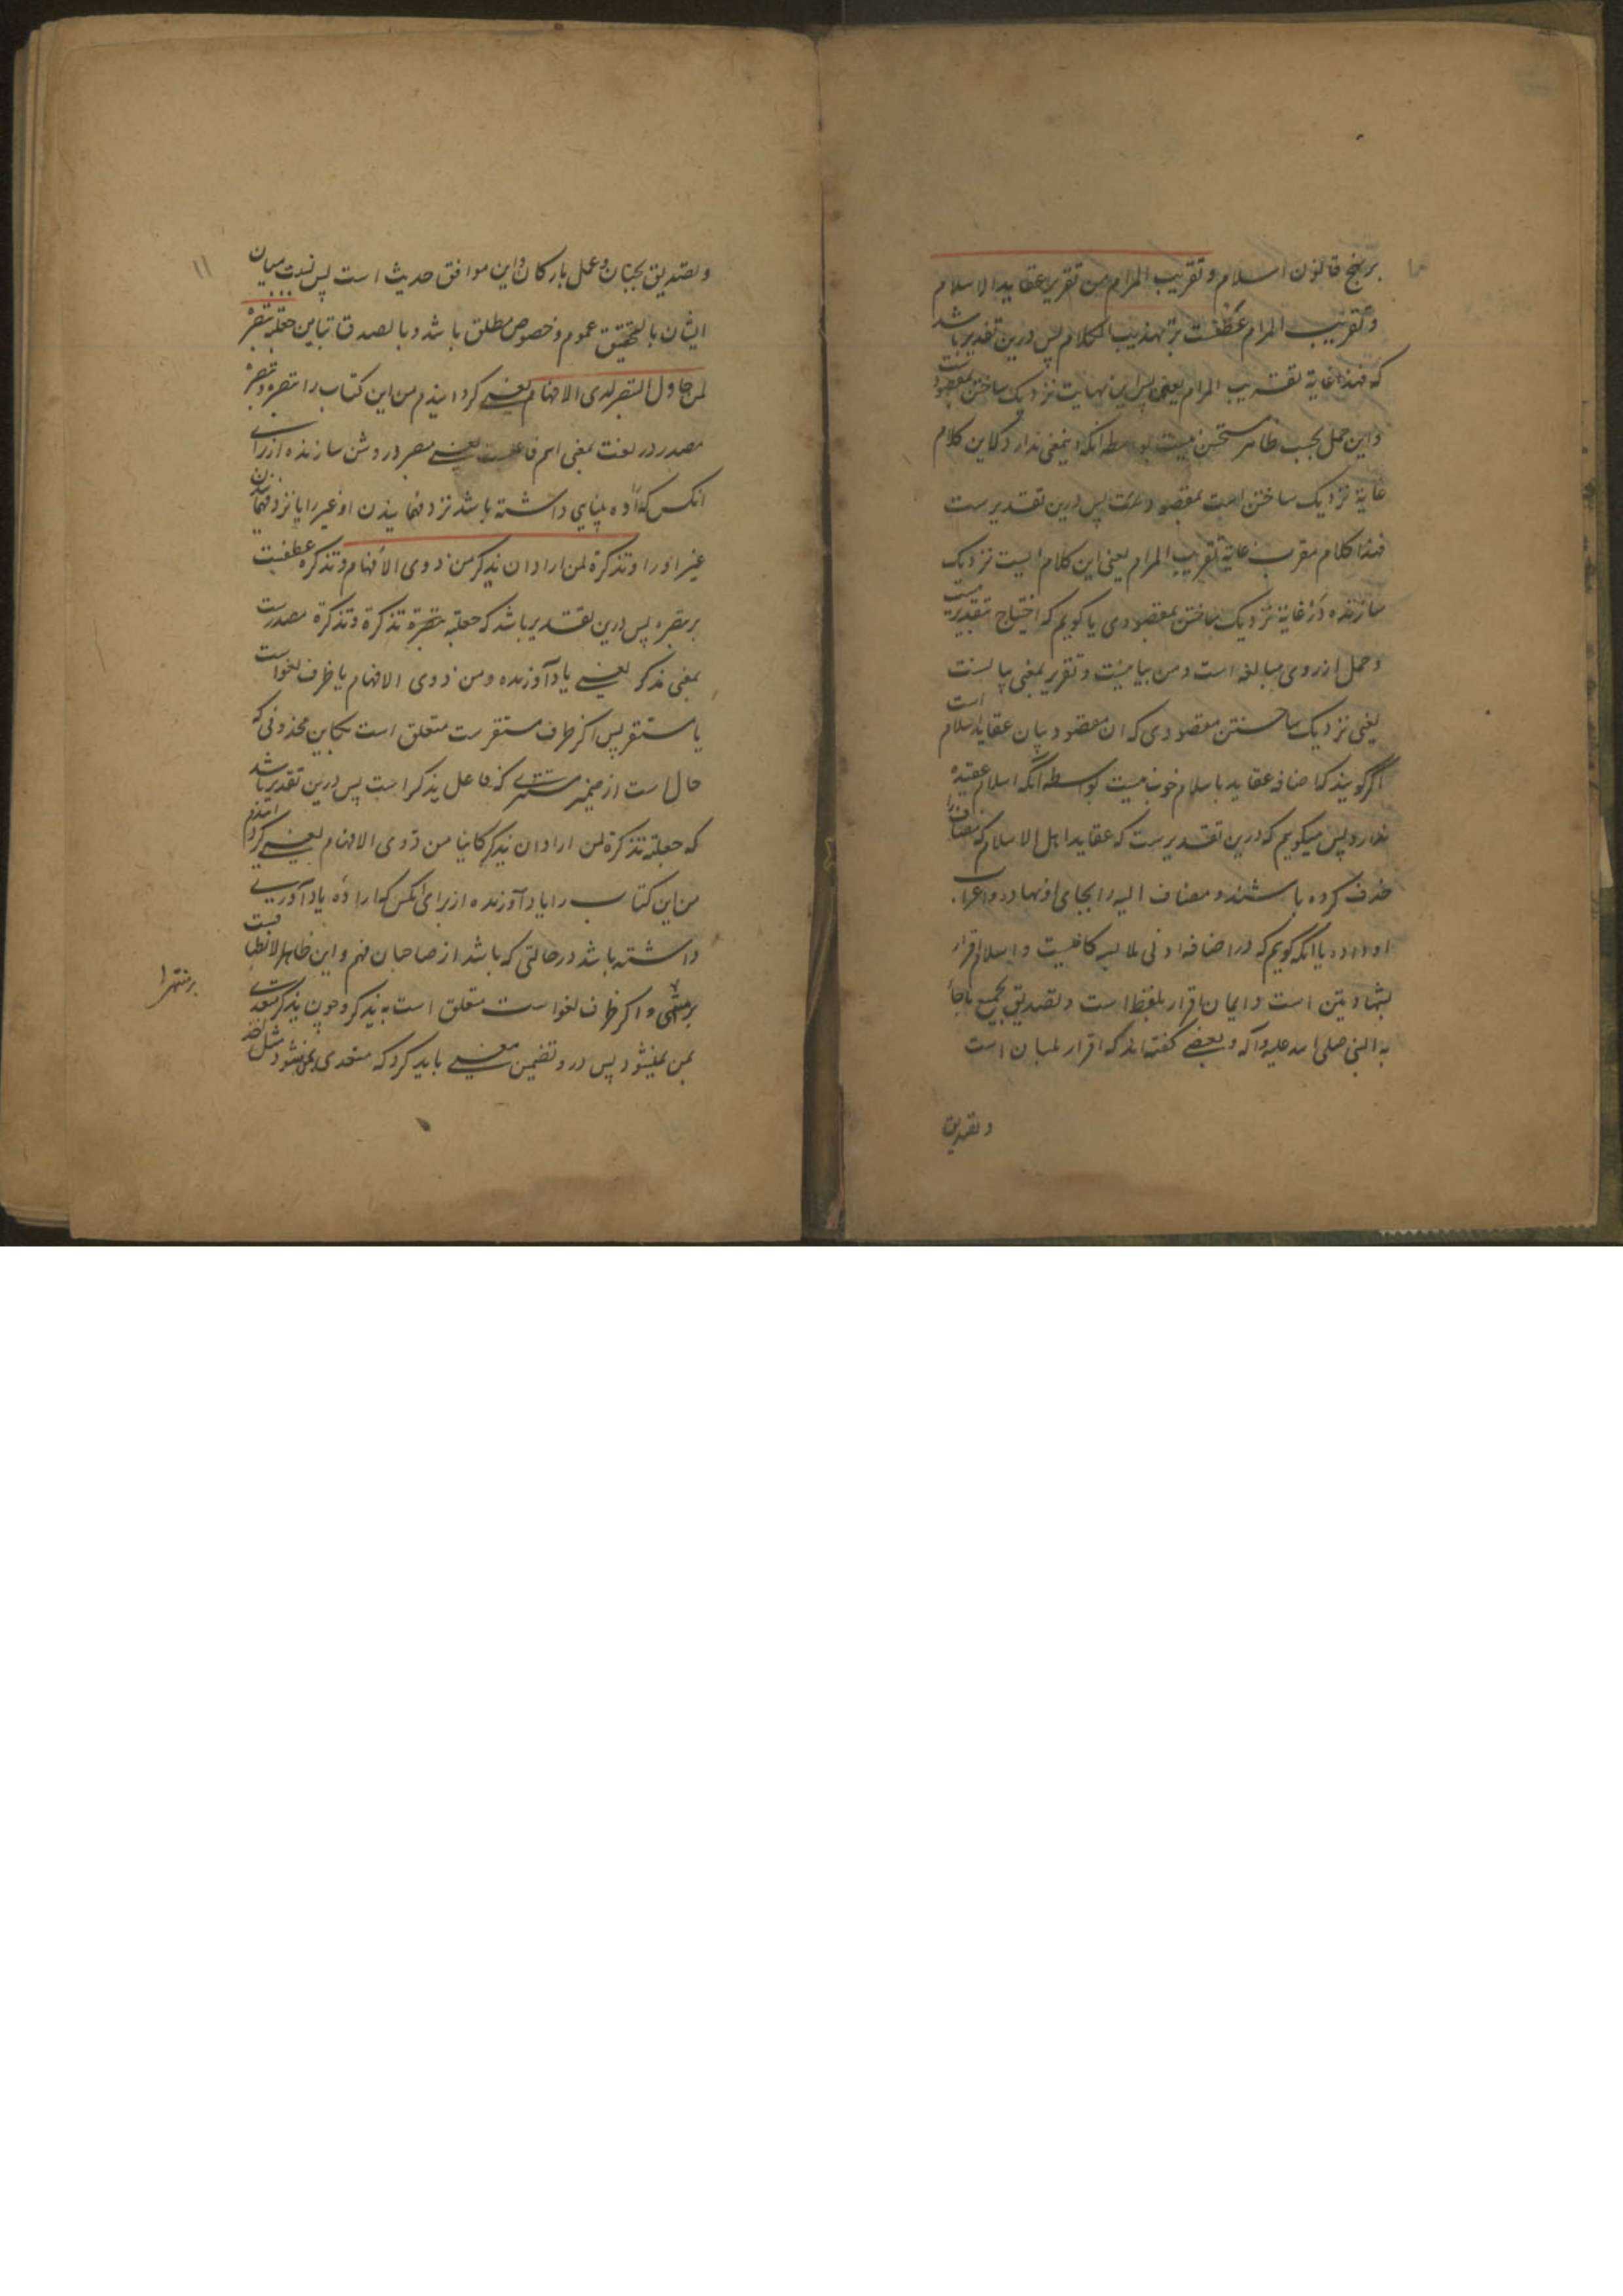 بر نهج قانون اسلام و تقریب المرام من تقریر عقاید الاسلام
و تقریب المرام عطفست بر تهذیب الکلام پس درین تقدیر باشد
که فهذا غایة تقریب المرام یعنی پس این نهایت نزدیک ساختن بمقصودست
و این حمل بحسب ظاهر مستحسن نیست بواسطه انکه اینمعنی ندارد که این کلام
غایة نزدیک ساختن است بمقصود پس درین تقدیرست
فهذا کلام مقرب غایة تقریب المرام یعنی این کلام ایست نزدیک
سازنده در غایة نزدیک ساختن بمقصودی یا کویم که احتیاج بتقدیر نیست
و حمل از روی مبالغه است و من بیانیست و تقریر بمعنی بیانست
یعنی نزدیک ساختن مقصودی که ان مقصود بیان عقاید اسلام است
اگر کویند که اضافه عقاید باسلام خوب نیست بواسطه آنکه اسلام عقیده
ندارد پس میکویم که درین تقدیرست که عقاید اهل الاسلام که مضاف را
حذف کرده باشند و مضاف الیه را بجای او نهاده و اعراب
او داده یا انکه کویم که در اضافه ادنی ملابسه کافیست و اسلام اقرار
بشهادتین است و ایمان اقرار بلفظ است و تصدیق بجمیع ماجاء
به النبی صلی الله علیه و آله و بعضی کفته اند که اقرار بلسان است
و تصدیق
۱۱
و تصدیق بجنان و عمل بارکان و این موافق حدیث است پس نسبت میان
ایشان بالتحقیق عموم و خصوص مطلق باشد و بالصدق تباین جعلته تبصرة
لمن حاول التبصر لدی الافهام یعنی کردانیدم من این کتاب را تبصره و تبصرة
مصدر در لغت بمعنی اسم فاعلست یعنی مبصر و روشن سازنده از برای
انکس که اراده بینایی داشته باشد نزد فهمانیدن او غیر را یا نزد فهمانیدن
غیر او را و تذکرة لمن اراد ان یذکر من ذوی الافهام و تذکره عطفست
بر تبصره پس درین تقدیر باشد که جعلته تبصرة تذکرة و تذکرة مصدرست
بمعنی مذکر یعنی یاد آورنده و من ذوی الافهام یا ظرف لغو است
یا مستقر پس اکر ظرف مستقر ست متعلق است بکاین محذوفی که
حال است از ضمیر مستتری که فاعل یذکر است پس درین تقدیر باشد
که جعلته تذکرة لمن اراد ان یذکر کاینا من ذوی الافهام یعنی کردانیدم
من این کتاب را یاد آورنده از برای انکس که اراده یاد آوری
داشته باشد در حالتی که باشد از صاحبان فهم و این ظاهر الانطباقست
بر منتهی و اکر ظرف لغو است متعلق است به یذکر و چون یذکر متعدی
بمن نمیشود پس در و تضمین معنی باید کرد که متعدی بمن شود مثل اخذ
بر منتهی